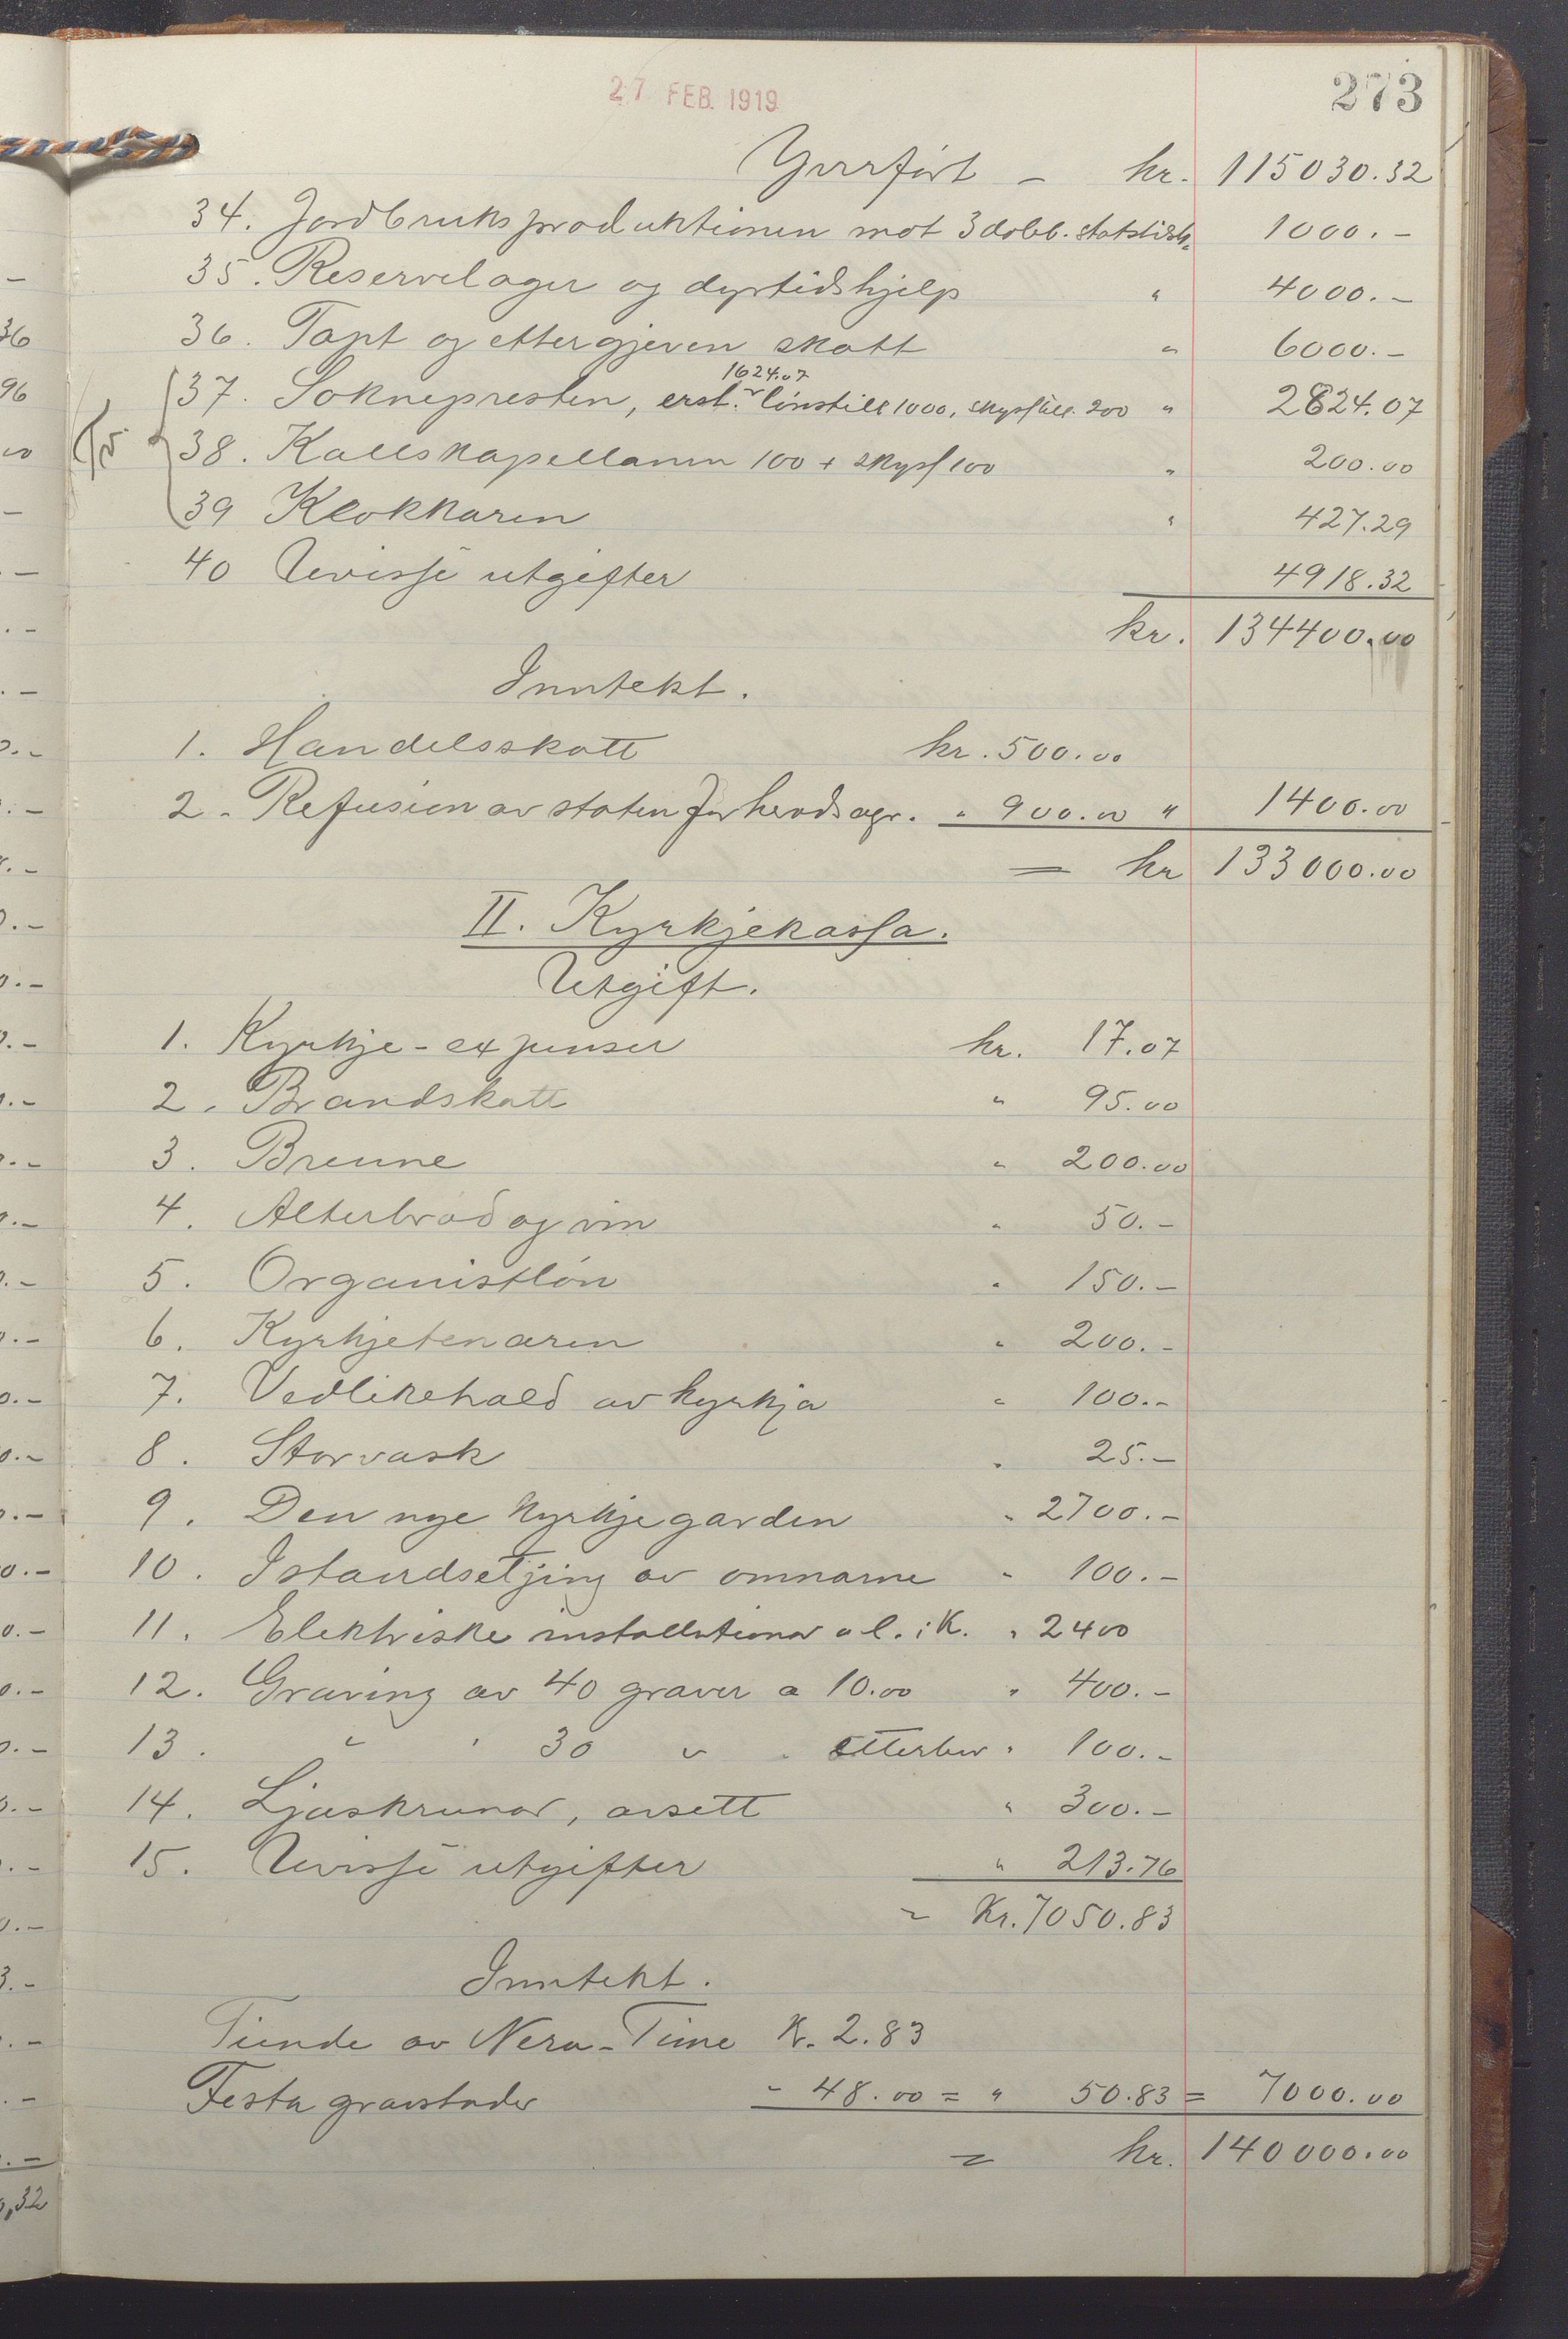 27 FEB. 1919
273
Yverført – kr. 115030.32
34. Jordbruksproduktionen mot 3 dobb. statstilsk. 1000.–
35. Reservelager og dyrtidshjelp " 4000.–
36. Tapt og ettergjeven skatt " 6000.–
1624.07
37. Soknepresten, erst. lönstill 1000, skysstill. 200 " 2824.07
38. Kallskapellanen 100 + skyss 100 " 200.00
39 Klokkaren " 427.29
40 Uvisse utgifter 4918.32
kr. 134400.00
Inntekt.
1. Handelsskatt kr. 500.00
2. Refusion av staten for heradsagr. " 900.00 " 1400.00
= kr 133000.00
II. Kyrkjekassa.
Utgift.
1. Kyrkje-expenser kr. 17.07
2. Brandskatt " 95.00
3. Brenne " 200.00
4. Alterbrød og vin " 50.–
5. Organistlön " 150.–
6. Kyrkjetenaren " 200.–
7. Vedlikehald av kyrkja " 100.–
8. Storvask " 25.–
9. Den nye kyrkjegarden " 2700.–
10. Istandsetjing av omnarne " 100.–
11. Elektriske installationar o l. i K. " 2400
12. Graving av 40 graver a 10.00 " 400.–
13. " " 30 " " etterbev " 100.–
14. Ljoskrunor, avsett " 300.–
15. Uvisse utgifter " 213.76
= Kr. 7050.83
Inntekt.
Tiende av Nera-Time Kr. 2.83
Festa gravstader " 48.00 = " 50.83 = 7000.00
= kr. 140000.00